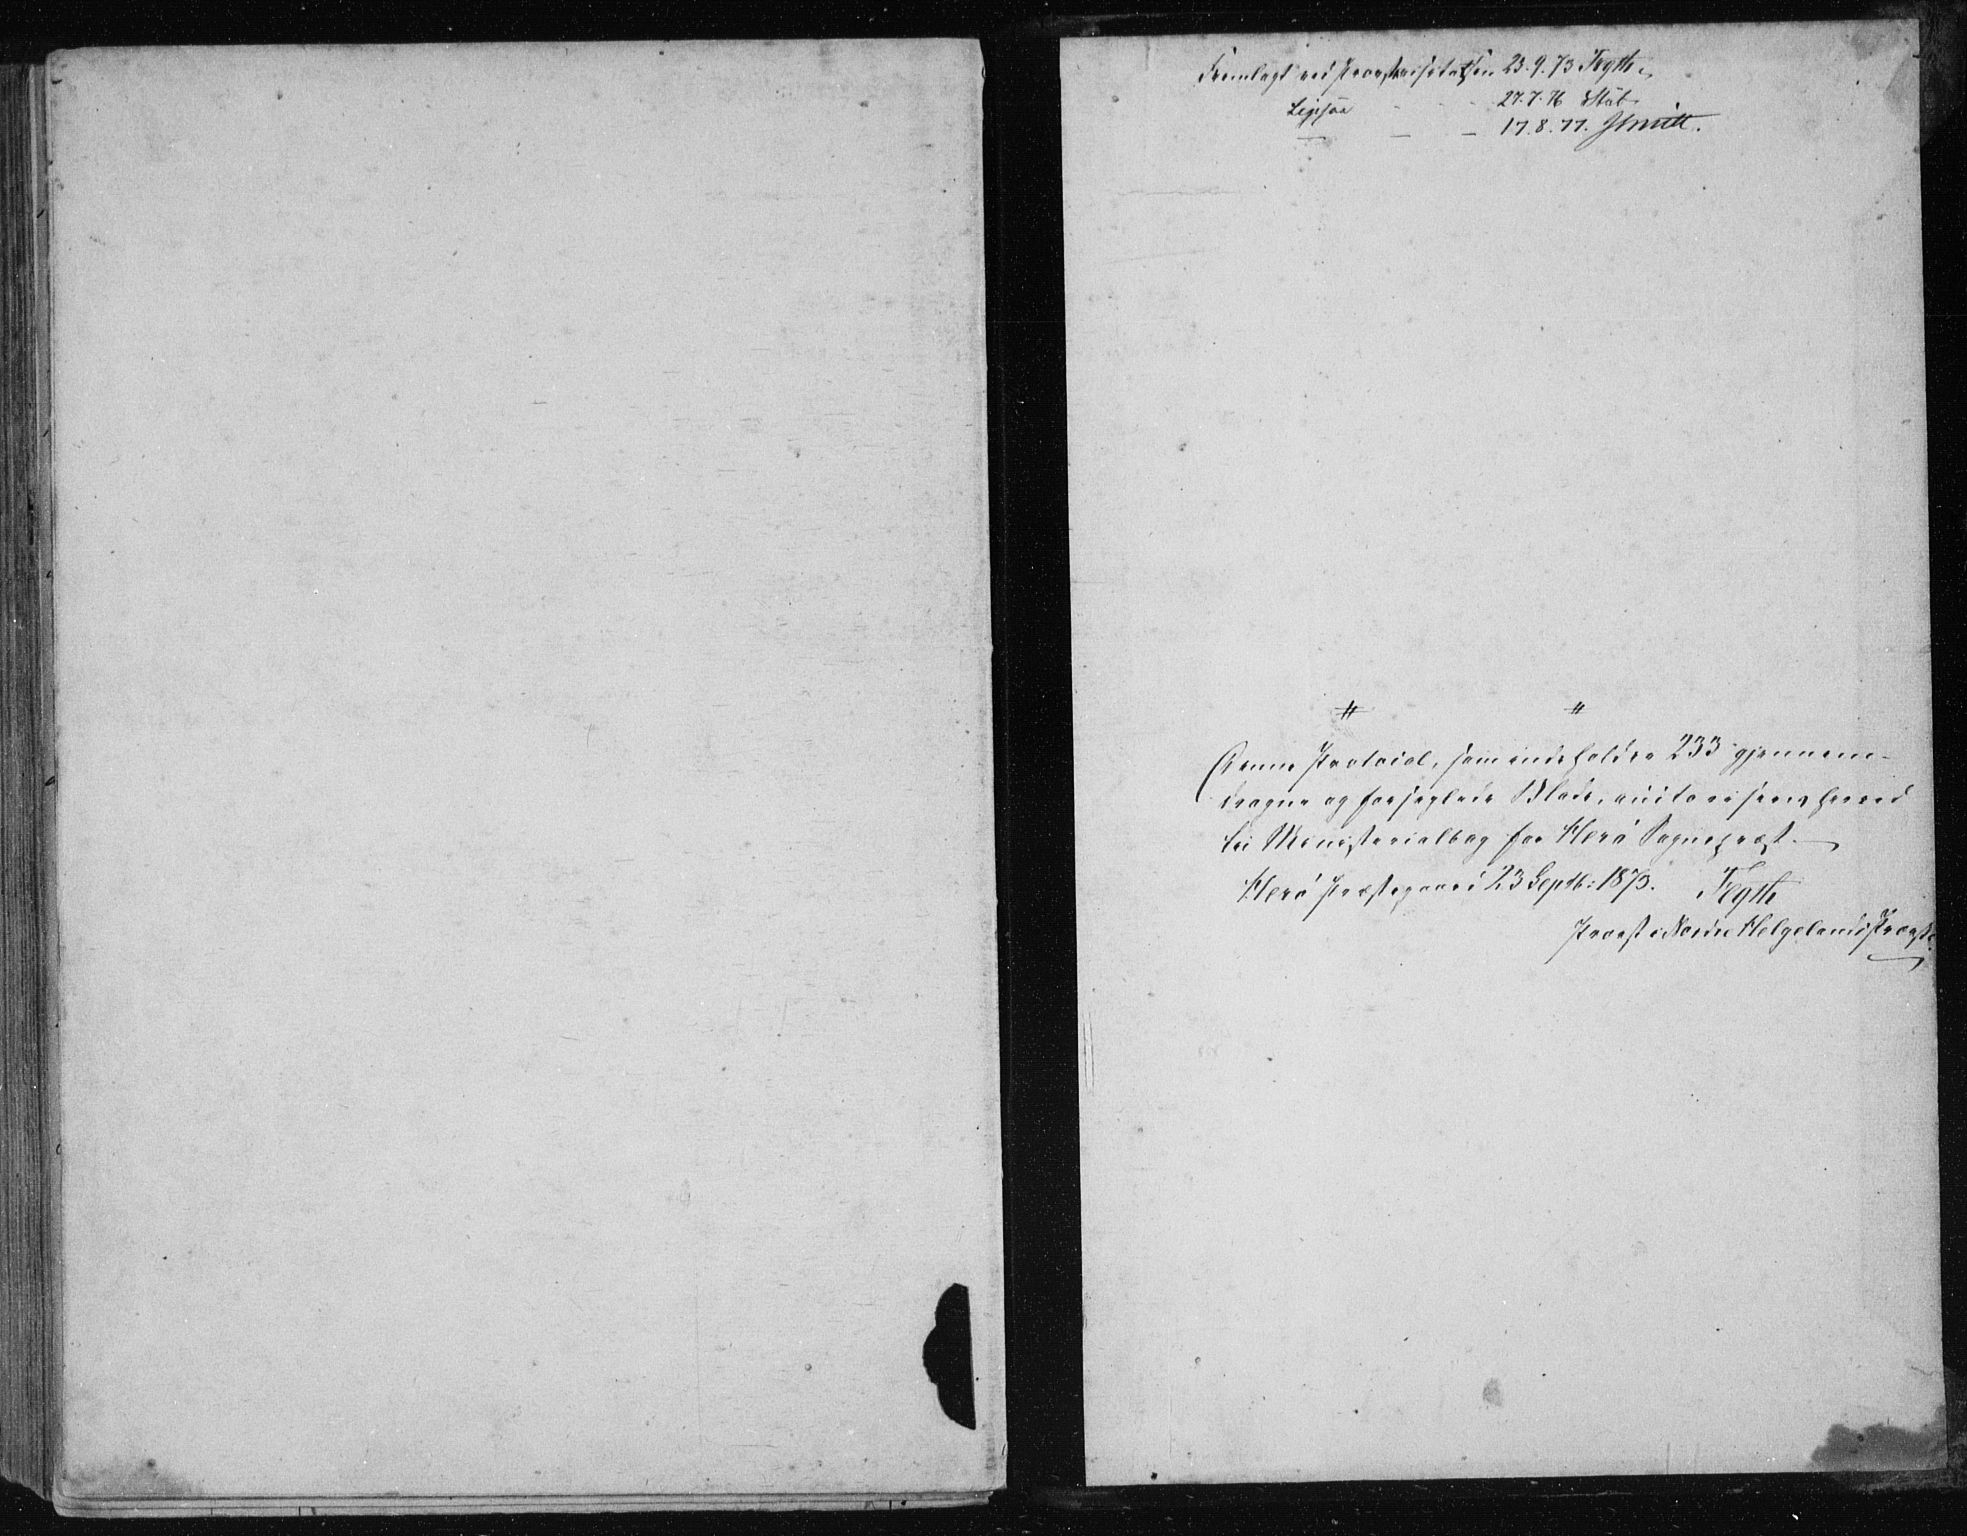 Fremlagt ved Provstevisitatsen 23.9.73 Fegth.
Ligesaa - - - 27.7.76
— - - 17.8.77.
〃 〃
Denne Protocol, som indeholder 233 gjennem-
dragne og forseglede Blade, autoriseres herved
til Ministerialbog for Herø Sognepræst.
Herø Præstegaard 23 Septb: 1873. Fegth
Provst i Nordre Helgelands Provsti.